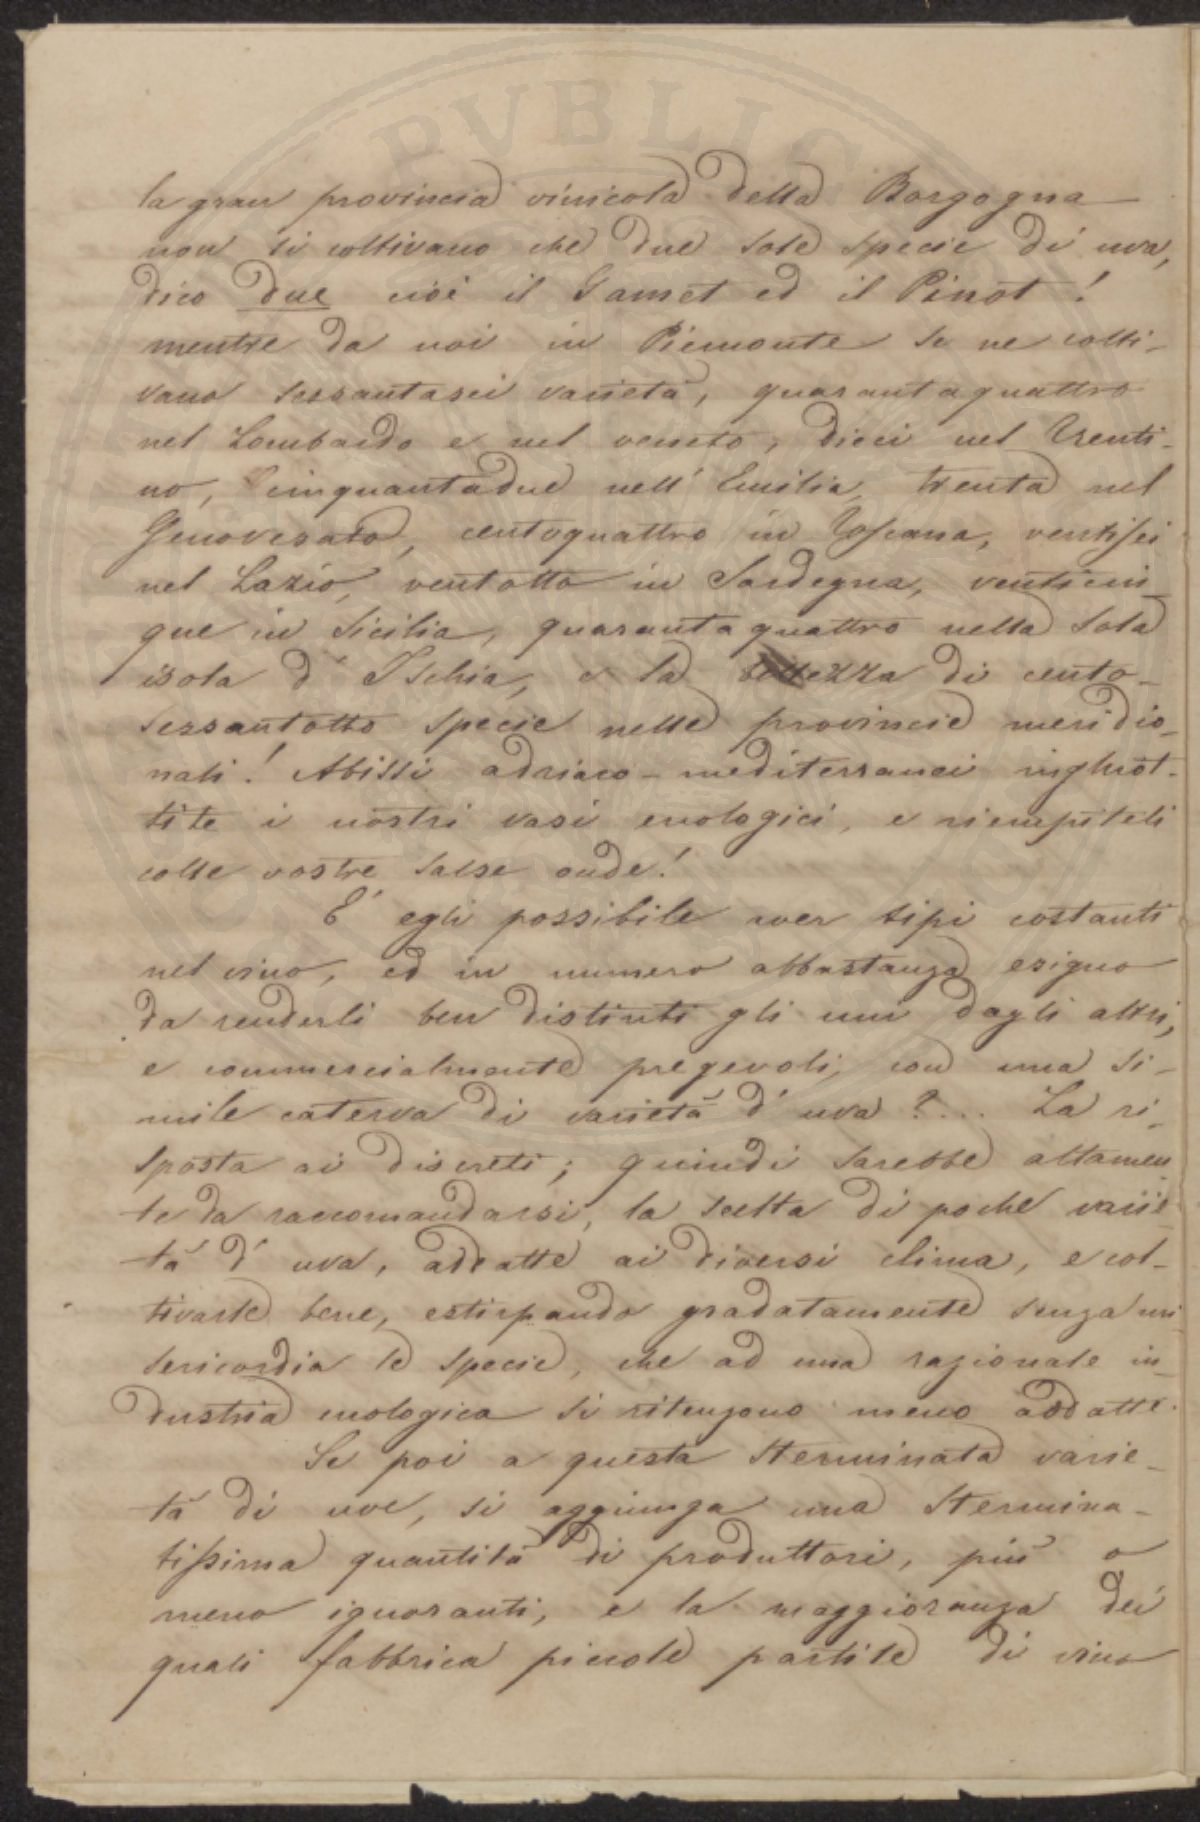 la gran provincia vinicola della Borgogna
non si coltivano che due sole specie di uva,
dico due cioè il Gamet ed il Pinot !
mentre da noi in Piemonte se ne colti-
vano sessantasei varietà, quarantaquattro
nel Lombardo e nel veneto, dieci nel Trenti-
no, cinquantadue nell' Emilia, trenta nel
Genovesato, centoquattro in Toscana, ventisei
nel Lazio, ventotto in Sardegna, venticin
que in Sicilia, quarantaquattro nella sola
isola d' Ischia, e la bellezza di cento-
sessantotto specie nelle provincie meridio-
nali ! Abissi adriaco-mediterranei inghiot-
tite i nostri vasi enologici, e riempiteli
colle vostre salse onde !
E' egli possibile aver tipi costanti
nel vino, ed in numero abbastanza esiguo
da renderli ben distinti gli uni dagli altri,
e commercialmente pregevoli, con una si-
mile caterva di varietà d' uva ? ... La ri-
sposta ai discreti ; quindi sarebbe altamen
te da raccomandarsi, la scelta di poche varie
tà d' uva, addatte ai diversi clima, e col-
tivarle bene, estirpando gradatamente senza mi
sericordia le specie, che ad una razionale in-
dustria enologica si ritengono meno addatte.
Se poi a questa sterminata varie-
tà di uve, si aggiunga una stermina-
tissima quantità di produttori, più o
meno ignoranti, e la maggioranza dei
quali fabbrica piccole partite di vino
PVBLIC